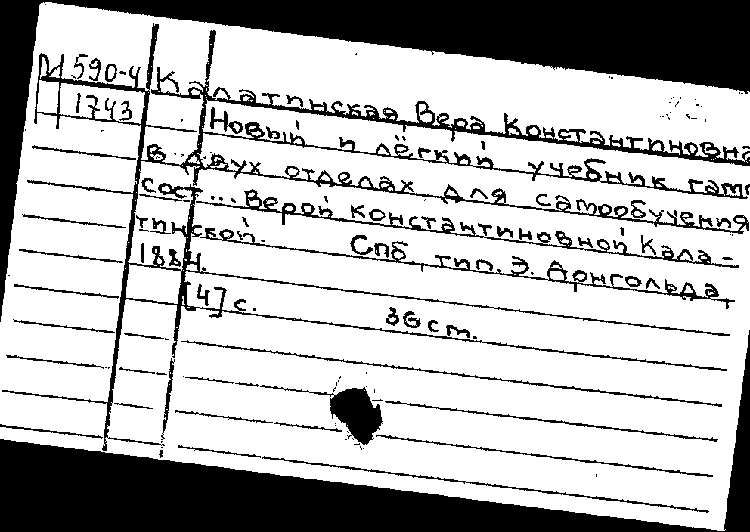 И 590-4 Калатинская, Вера Константиновна
1743 Новый и лёгкий учебник гамм
в двух отделах для самообучения
сост... Верой Константиновной Кала-
тинской. Спб, тип. Э. Арнгольда,
1884.
[4] с. 36 см.